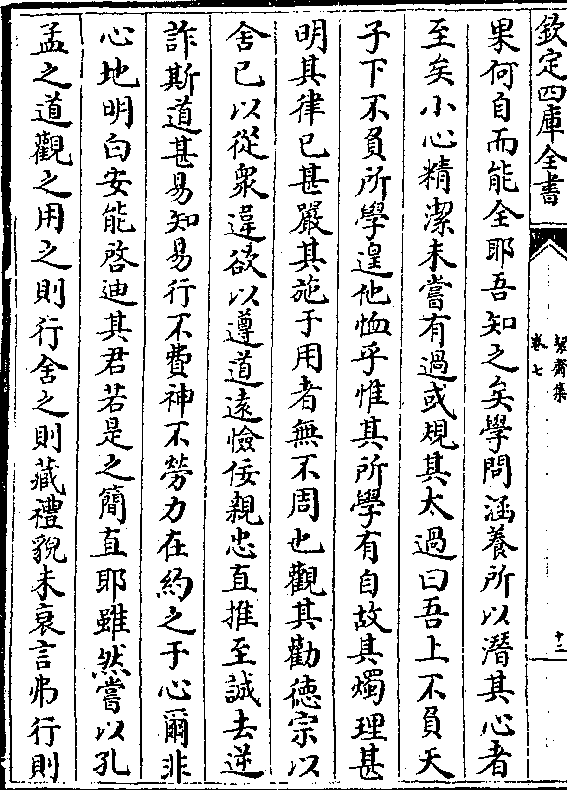 欽定四庫全書
絜齋集
卷七
十三
果何自而能全耶吾知之矣學問涵養所以潛其心者
至矣小心精潔未嘗有過或規其太過曰吾上不負天
子下不負所學遑他恤乎惟其所學有自故其燭理甚
明其律已甚嚴其施于用者無不周也觀其勸德宗以
舍已以從衆違欲以遵道遠憸佞親忠直推至誠去逆
詐斯道甚易知易行不費神不勞力在約之于心爾非
心地明白安能啓迪其君若是之簡直耶雖然嘗以孔
孟之道觀之用之則行舍之則藏禮貌未衰言弗行則